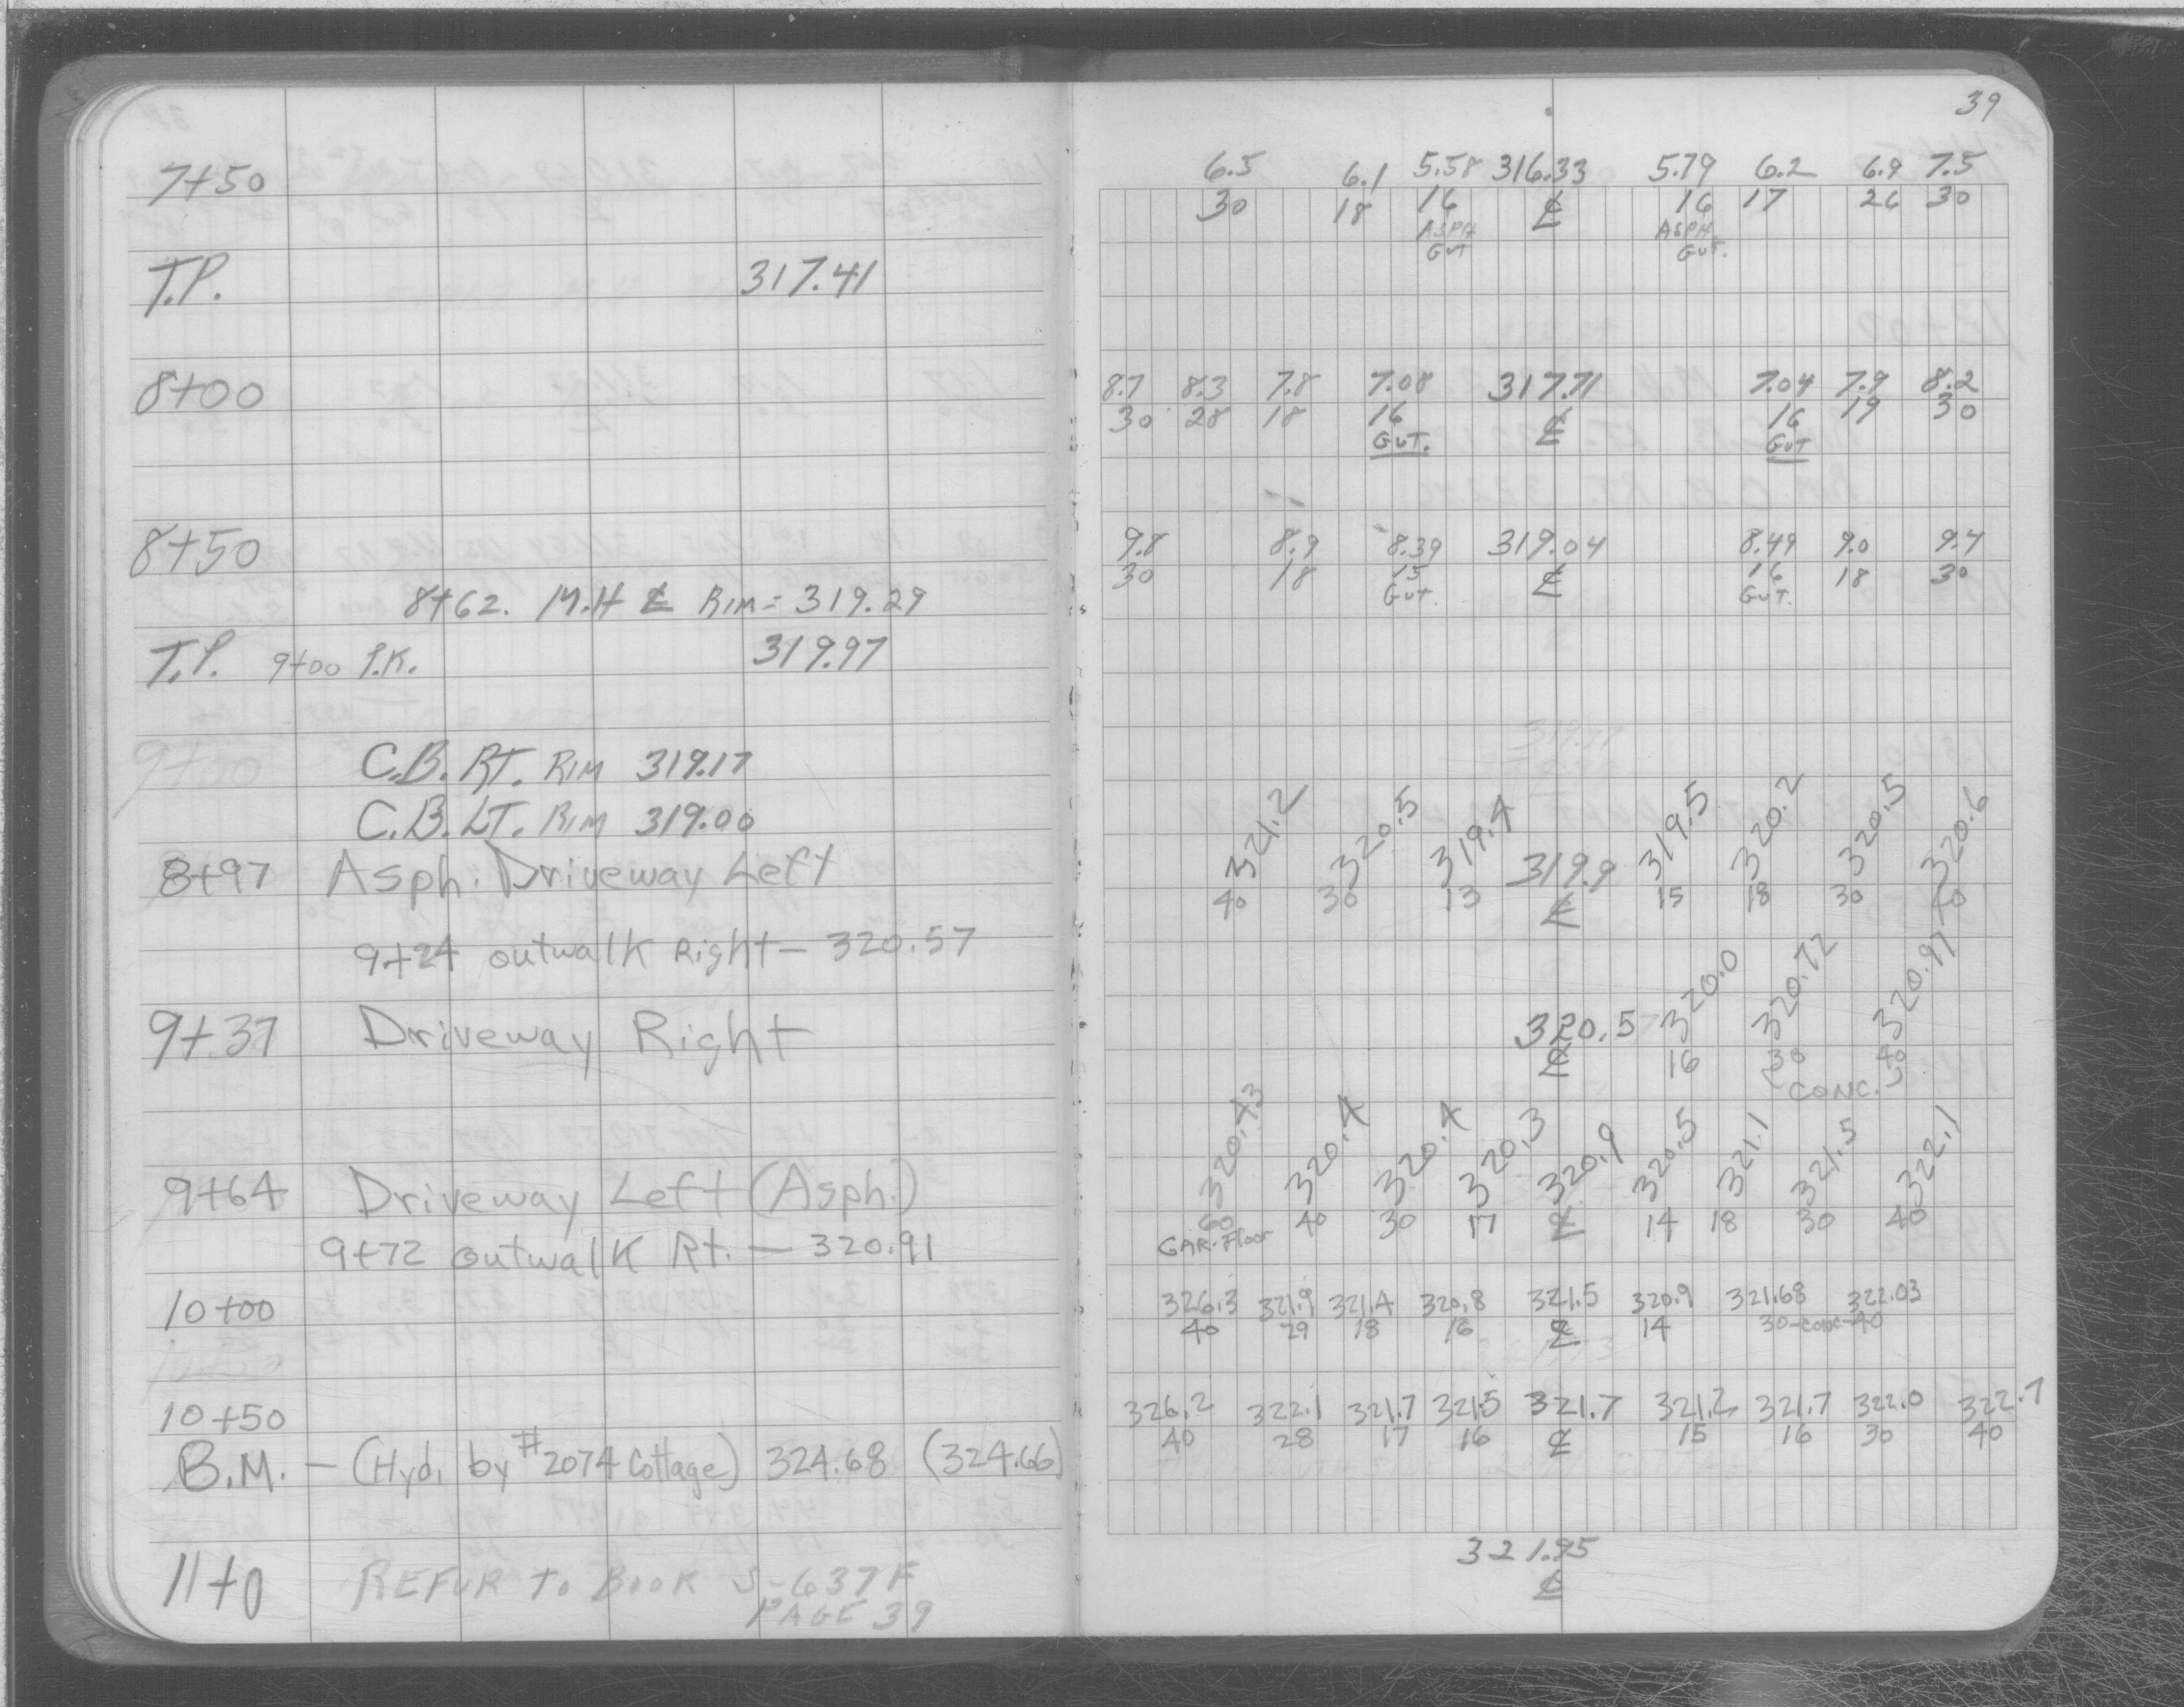 39
7+50
6.5 6.1 5.58 316.33 5.79 6.2 6.9 7.5
30 18 16 ℄ 16 17 26 30
ASPH ASPH.
GUT GUT.
T.P. 317.41
8+00
8.7 8.3 7.8 7.08 317.71 7.04 7.9 8.2
30 28 18 16 ℄ 16 19 30
GUT. GUT
8+50
9.8 8.9 8.39 319.04 8.49 9.0 9.4
30 18 15 ℄ 16 18 30
GUT. GUT.
8+62. M.H ℄ RIM = 319.29
T.P. 9+00 P.K. 319.97
9+00 C.B. RT. RIM 319.17
C.B. LT. RIM 319.00
8+97 Asph. Driveway Left
321.2 320.5 319.4 319.9 319.5 320.2 320.5 320.6
40 30 13 ℄ 15 18 30 40
9+24 outwalk Right - 320.57
9+37 Driveway Right
320.57 320.0 320.72 320.97
℄ 16 30 40
CONC.
9+64 Driveway Left (Asph.)
320.43 320.4 320.4 320.3 320.9 320.5 321.1 321.5 322.1
60 40 30 17 ℄ 14 18 30 40
GAR. Floor
9+72 outwalk Rt. - 320.91
10+00
326.3 321.9 321.4 320.8 321.5 320.9 321.68 322.03
40 29 18 16 ℄ 14 30-conc-40
10+50
326.2 322.1 321.7 321.5 321.7 321.2 321.7 322.0 322.7
40 28 17 16 ℄ 15 16 30 40
B.M. - (Hyd. by #2074 Cottage) 324.68 (324.66)
11+0 REFUR TO BOOK S-637F
PAGE 39
321.95
℄